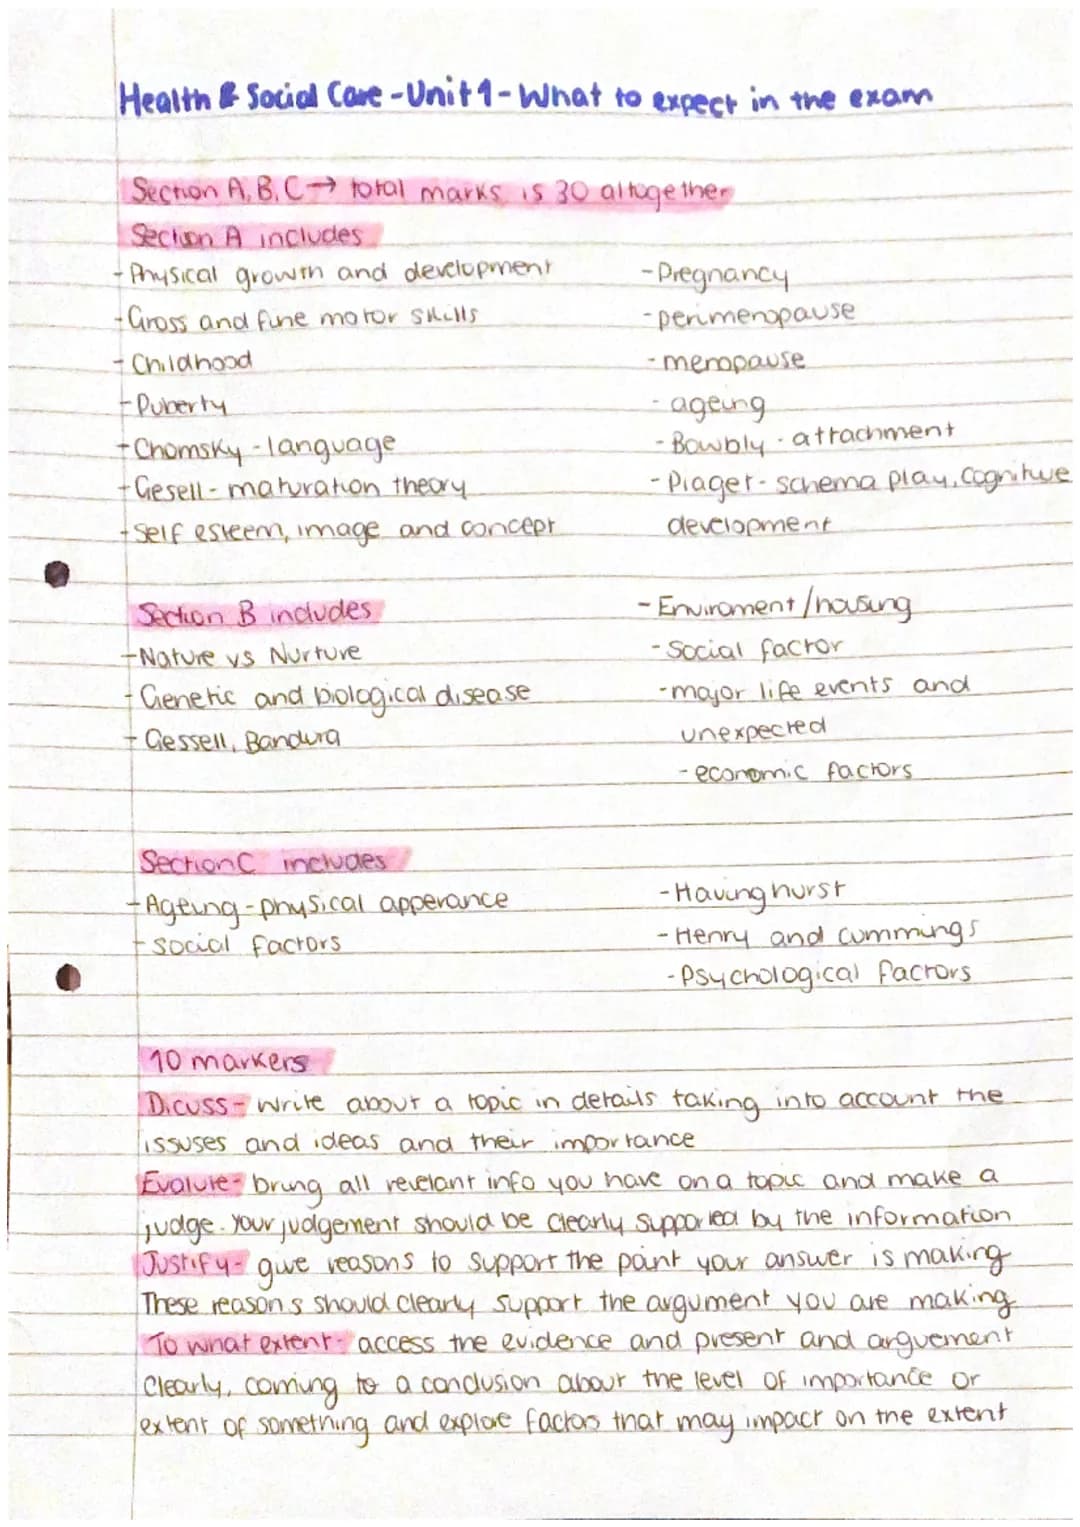 Health & Social Care - Unit 1 - What to expect in the exam
Section A, B, C → total marks is 30 altogether
Section A includes
- Physical growth and development
- Gross and fine motor skills
- Childhood
- Puberty
- Chomsky - language
- Gesell - maturation theory
- Self esteem, image and concept
- Pregnancy
- perimenopause
- menopause
- ageing
- Bowbly - attachment
- Piaget - schema play, Cognitive
development
Section B includes
- Nature vs Nurture
- Genetic and biological disease
- Gessell, Bandura
- Enviroment / housing
- Social factor
- major life events and
unexpected
- economic factors
Section C includes
- Ageing - physical apperance
- social factors
- Havinghurst
- Henry and cummings
- Psychological factors
10 markers
Dicuss - write about a topic in details taking into account the
issuses and ideas and their importance
Evalute - bring all revelant info you have on a topic and make a
judge. Your judgement should be clearly supported by the information
Justify - give reasons to support the point your answer is making
These reasons should clearly support the argument you are making
To what extent - access the evidence and present and arguement
clearly, coming to a conclusion about the level of importance or
extent of something and explore factors that may impact on the extent